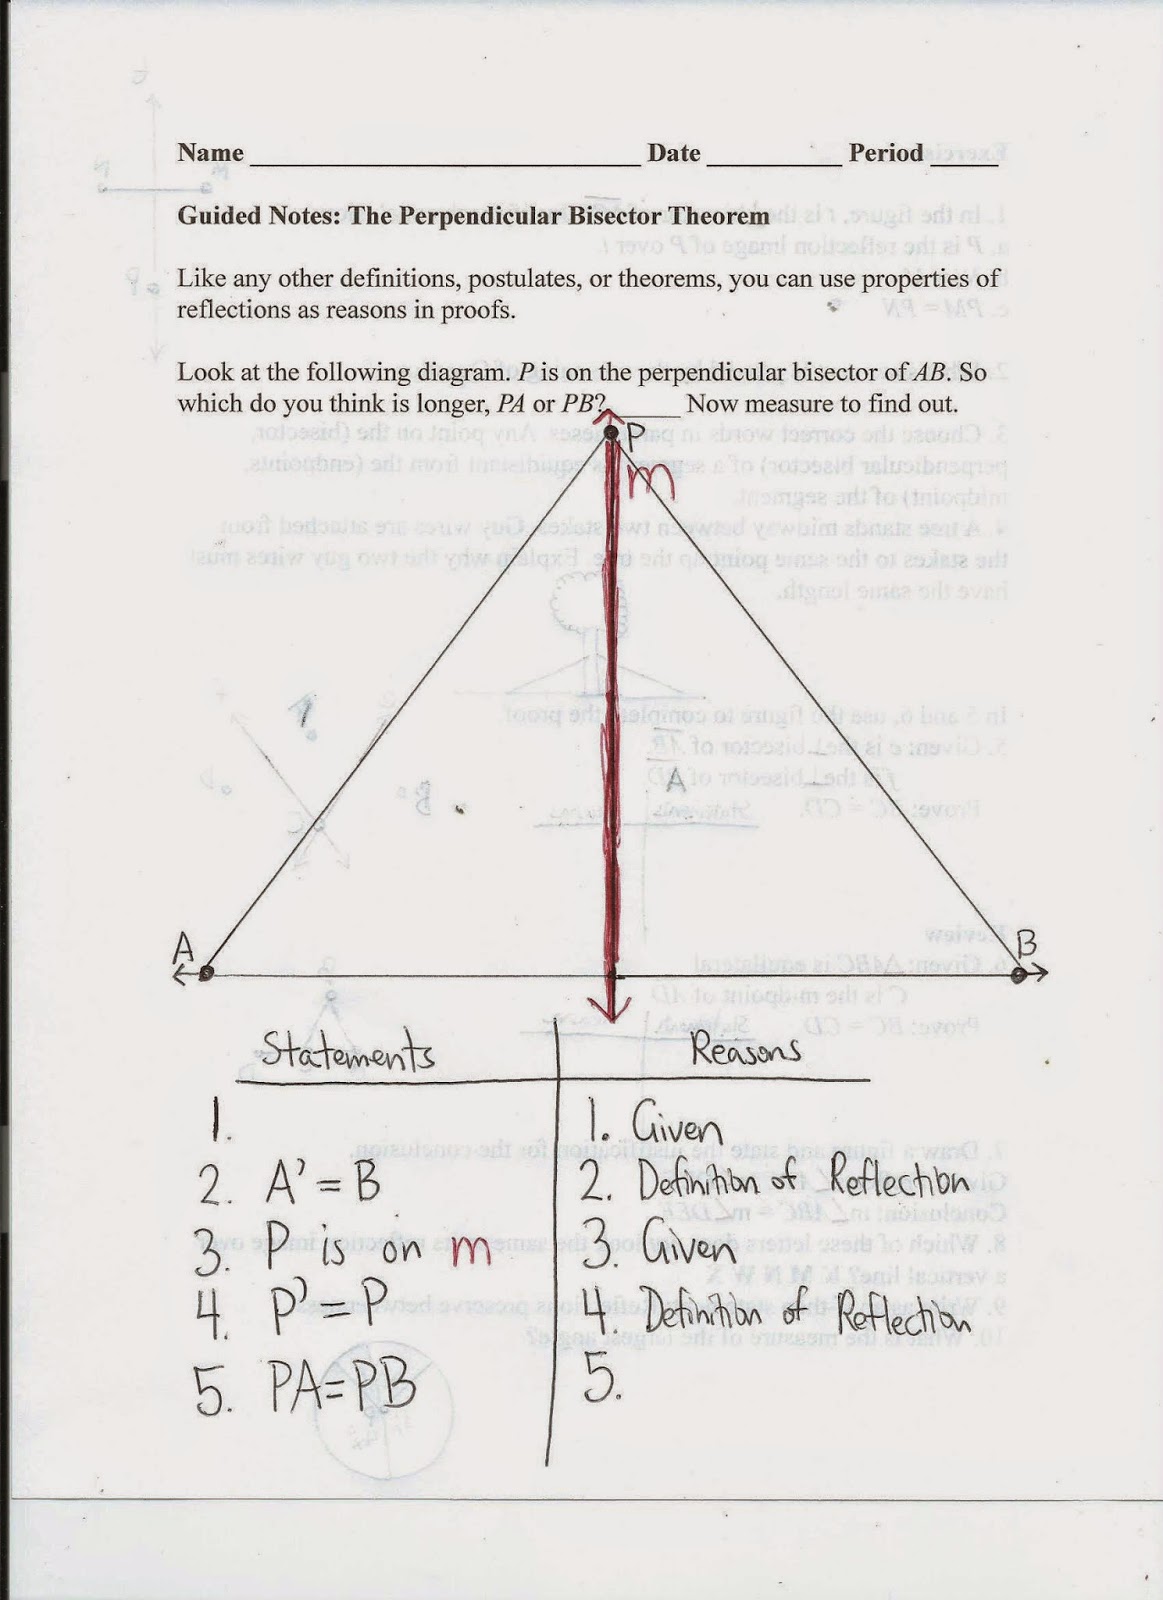 Name ____________ Date ________ Period _____
Guided Notes: The Perpendicular Bisector Theorem
Like any other definitions, postulates, or theorems, you can use properties of
reflections as reasons in proofs.
Look at the following diagram. P is on the perpendicular bisector of AB. So
which do you think is longer, PA or PB? ______ Now measure to find out.
P
m
A
B
Statements Reasons
1. 1. Given
2. A' = B 2. Definition of Reflection
3. P is on m 3. Given
4. P' = P 4. Definition of Reflection
5. PA = PB 5.